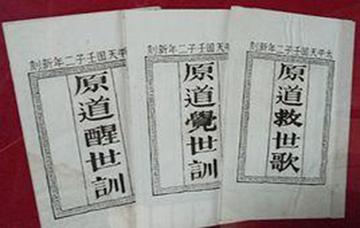 太平天囯壬子二年新刻
原道救世歌
平天囯壬子二年新刻
原道覺世訓
平天囯壬子二年新刻
原道醒世訓